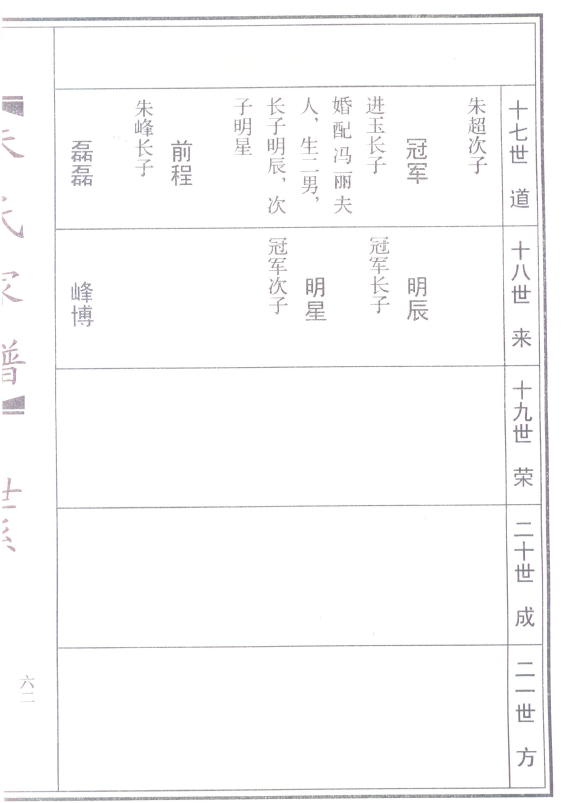 十七世 道
朱超次子
冠军
进玉长子
婚配冯丽夫
人，生二男，
长子明辰，次
子明星
前程
朱峰长子
磊磊
十八世 来
明辰
冠军长子
明星
冠军次子
峰博
十九世 荣
二十世 成
二一世 方
朱氏家谱
世系
六二